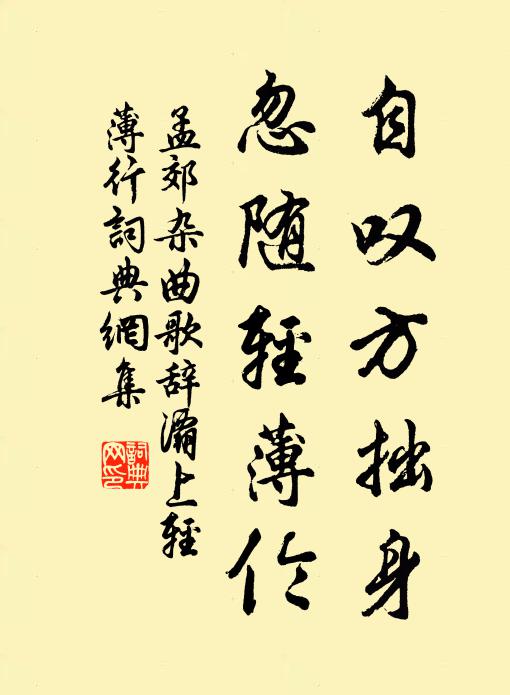 自叹方拙身
忽随轻薄伦
孟郊杂曲歌辞灞上轻
薄行词典網集
詞典
网印